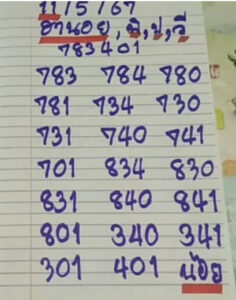 11/5/67
ฮานอย, พิ, ป, วี
783401
783 784 780
781 734 730
731 740 741
701 834 830
831 840 841
801 340 341
301 401 น่อย